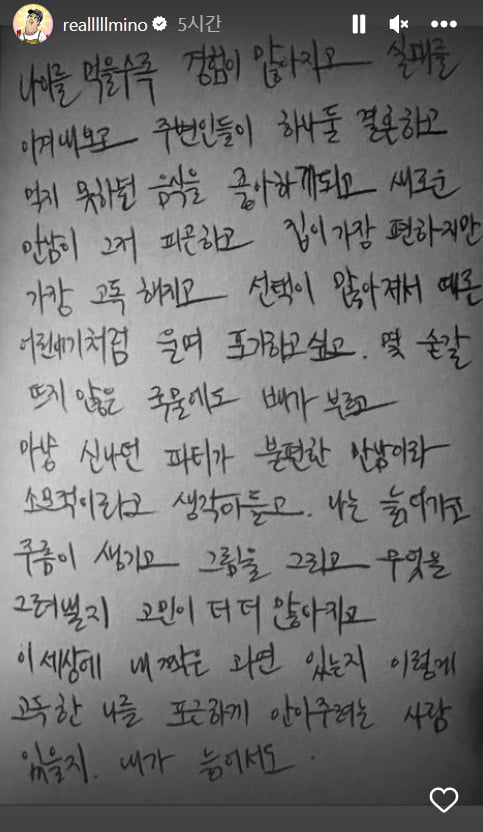 realllllmino 5시간
나이를 먹을수록 경험이 많아지고 실패를
이겨내보고 주변인들이 하나둘 결혼하고
먹지 못하던 음식을 좋아하게되고 새로운
만남이 그저 피곤하고 집이 가장 편하지만
가장 고독 해지고 선택이 많아져서 때론
어린애기처럼 울며 포기하고싶고. 몇 숟갈
뜨지 않은 국물에도 배가 부르고
마냥 신나던 파티가 불편한 만남이라
소모적이라고 생각이들고. 나는 늙어가고
주름이 생기고 그림을 그리고 무엇을
그려낼지 고민이 더 더 많아지고
이 세상에 내 짝은 과연 있는지 이렇게
고독한 나를 포근하게 안아주려는 사람
있을지. 내가 늙어서도.